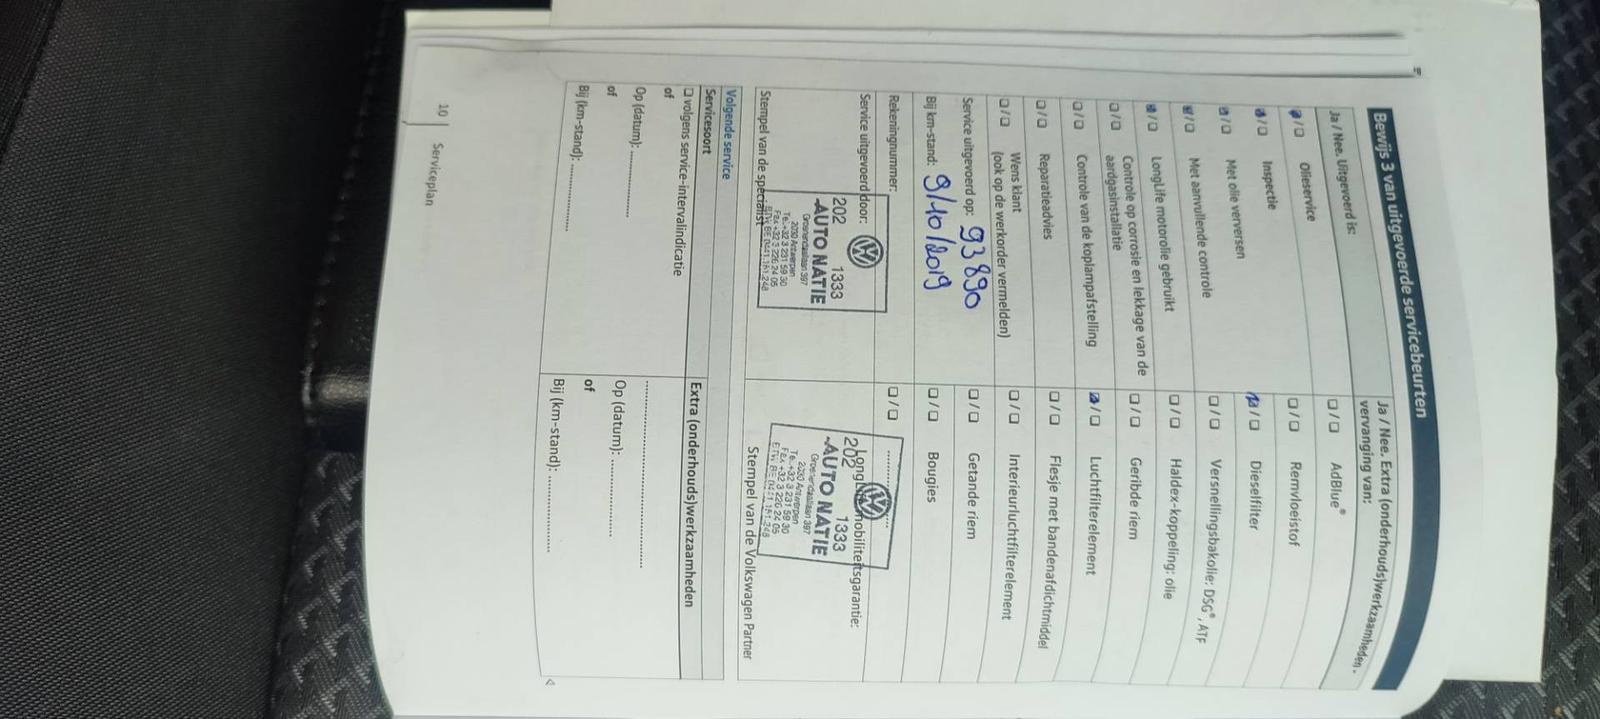 Bewijs 3 van uitgevoerde servicebeurten
Ja / Nee. Uitgevoerd is:
☑ / ☐ Olieservice
☑ / ☐ Inspectie
☑ / ☐ Met olie verversen
☑ / ☐ Met aanvullende controle
☑ / ☐ LongLife motorolie gebruikt
☐ / ☐ Controle op corrosie en lekkage van de
aardgasinstallatie
☐ / ☐ Controle van de koplampafstelling
☐ / ☐ Reparatieadvies
☐ / ☐ Wens klant
(ook op de werkorder vermelden)
Service uitgevoerd op: 93 890
Bij km-stand: 9/10/2019
Rekeningnummer:
Service uitgevoerd door:
202 1333
AUTO NATIE
Groenendaallaan 397
2030 Antwerpen
Te.+32 3 231 59 30
Fax +32 3 226 24 05
BTW. BE 0441.161.248
Stempel van de specialist
Ja / Nee. Extra (onderhouds)werkzaamheden -
vervanging van:
☐ / ☐ AdBlue®
☐ / ☐ Remvloeistof
☑ / ☐ Dieselfilter
☐ / ☐ Versnellingsbakolie: DSG®, ATF
☐ / ☐ Haldex-koppeling: olie
☐ / ☐ Geribde riem
☑ / ☐ Luchtfilterelement
☐ / ☐ Flesje met bandenafdichtmiddel
☐ / ☐ Interieurluchtfilterelement
☐ / ☐ Getande riem
☐ / ☐ Bougies
☐ / ☐
LongLife mobiliteitsgarantie:
202 1333
AUTO NATIE
Groenendaallaan 397
2030 Antwerpen
Te.+32 3 231 59 30
Fax +32 3 226 24 05
BTW. BE 0441.161.248
Stempel van de Volkswagen Partner
Volgende service
Servicesoort
☐ volgens service-intervalindicatie
of
Op (datum): ................
of
Bij (km-stand): ................
Extra (onderhouds)werkzaamheden
................
Op (datum): ................
of
Bij (km-stand): ................
10 Serviceplan